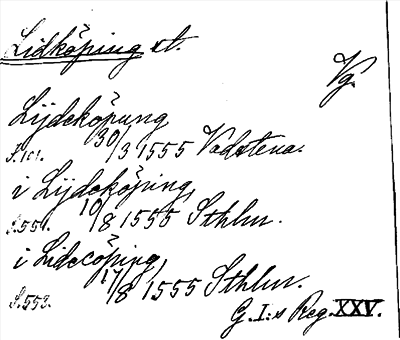 Lidköping st.
Vg.
Lijdeköpung
S. 101. 30/3 1555 Vadstena.
i Lijdeköping,
S. 551. 10/8 1555 Sthlm.
i Lidecöping,
S. 553. 17/8 1555 Sthlm.
G. I:s Reg. XXV.